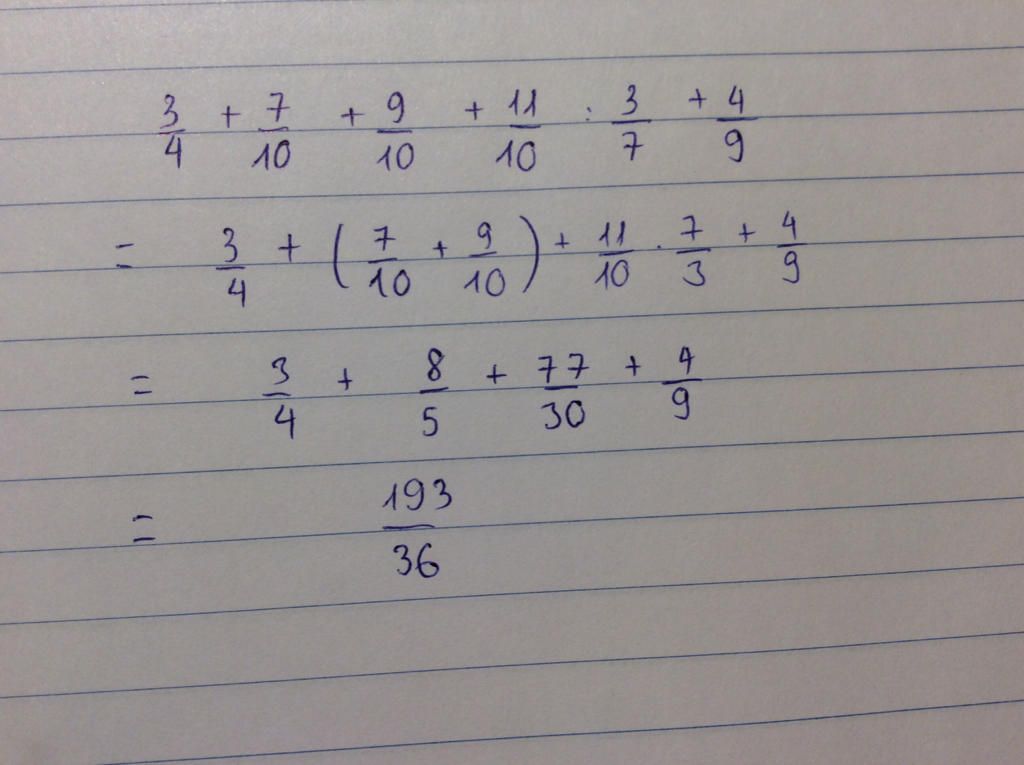 3/4 + 7/10 + 9/10 + 11/10 : 3/7 + 4/9
= 3/4 + (7/10 + 9/10) + 11/10 . 7/3 + 4/9
= 3/4 + 8/5 + 77/30 + 4/9
= 193/36